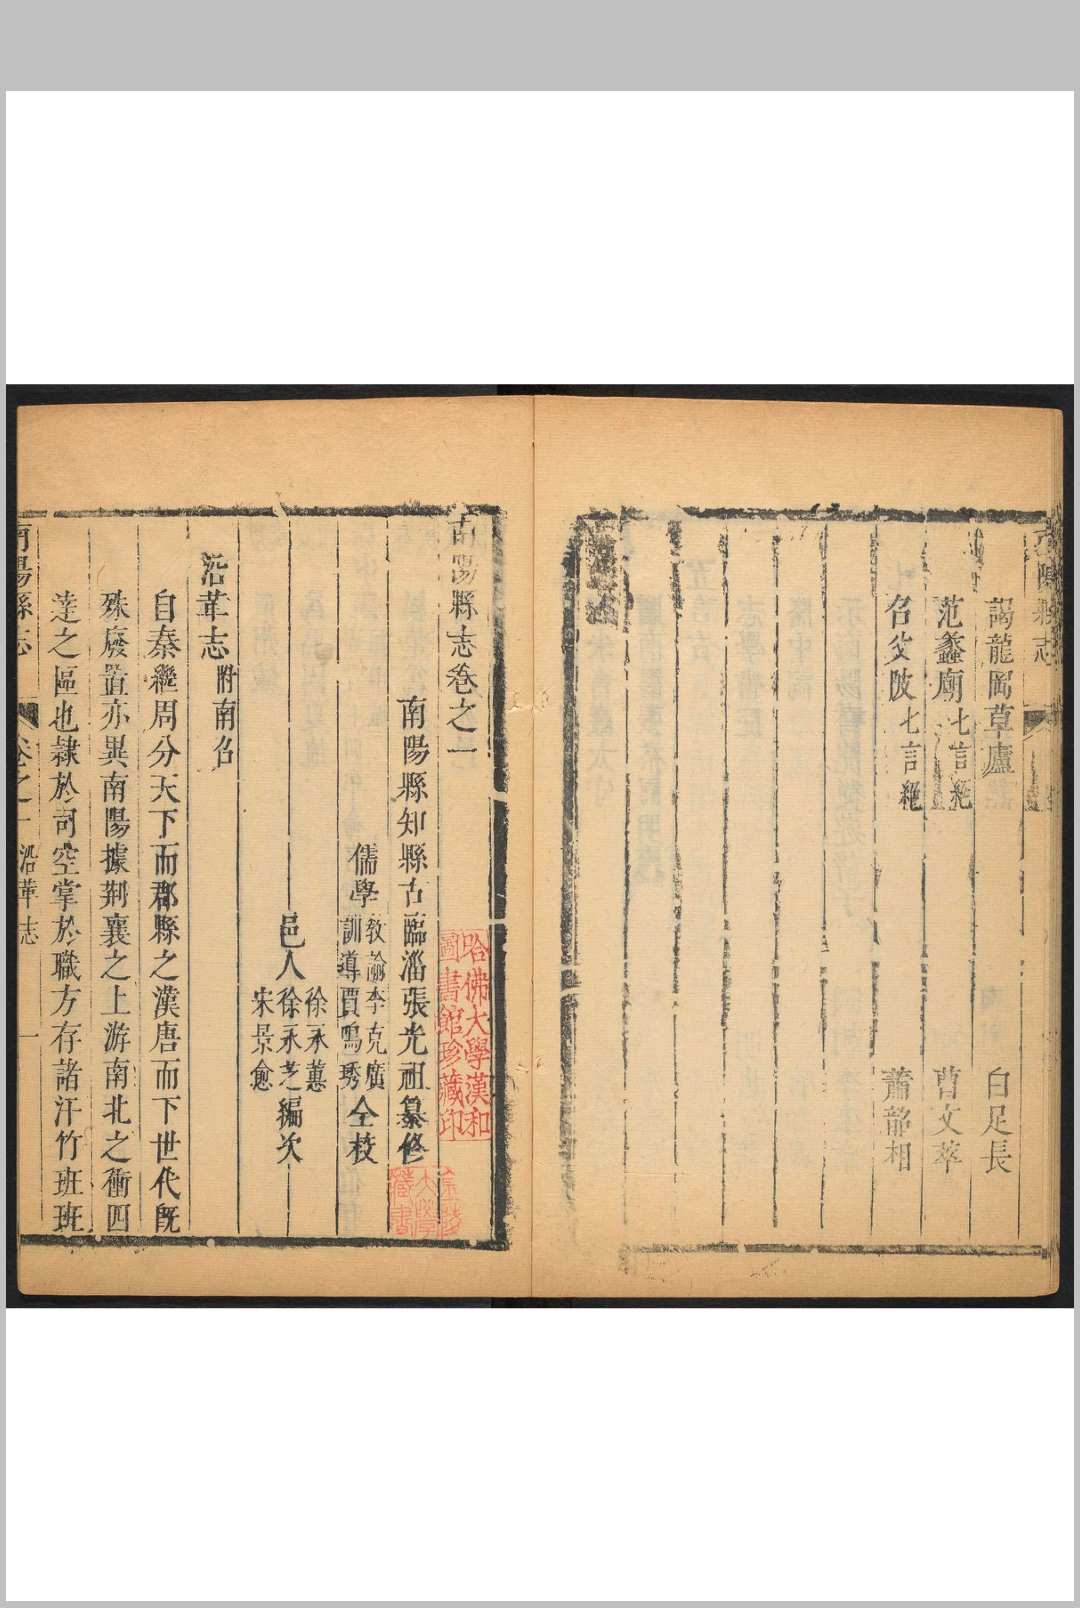 陽縣志
謁龍岡草廬 白足長
范蠡廟七言絶 曹文萃
召父陂七言絶 蕭韶相
南陽縣志卷之一
南陽縣知縣古臨淄張光祖纂修
儒學教諭李克廣
訓導賈鳴琇仝校
徐永蕙
邑人徐永芝編次
宋景愈
沿革志附南召
自秦繼周分天下而郡縣之漢唐而下世代既
殊廢置亦異南陽據荆襄之上游南北之衝四
達之區也隷於司空掌於職方存諸汗竹班班
南陽縣志 卷之一 沿革志 一
哈佛大學漢和
圖書館珍藏印
金陵
大學
藏書